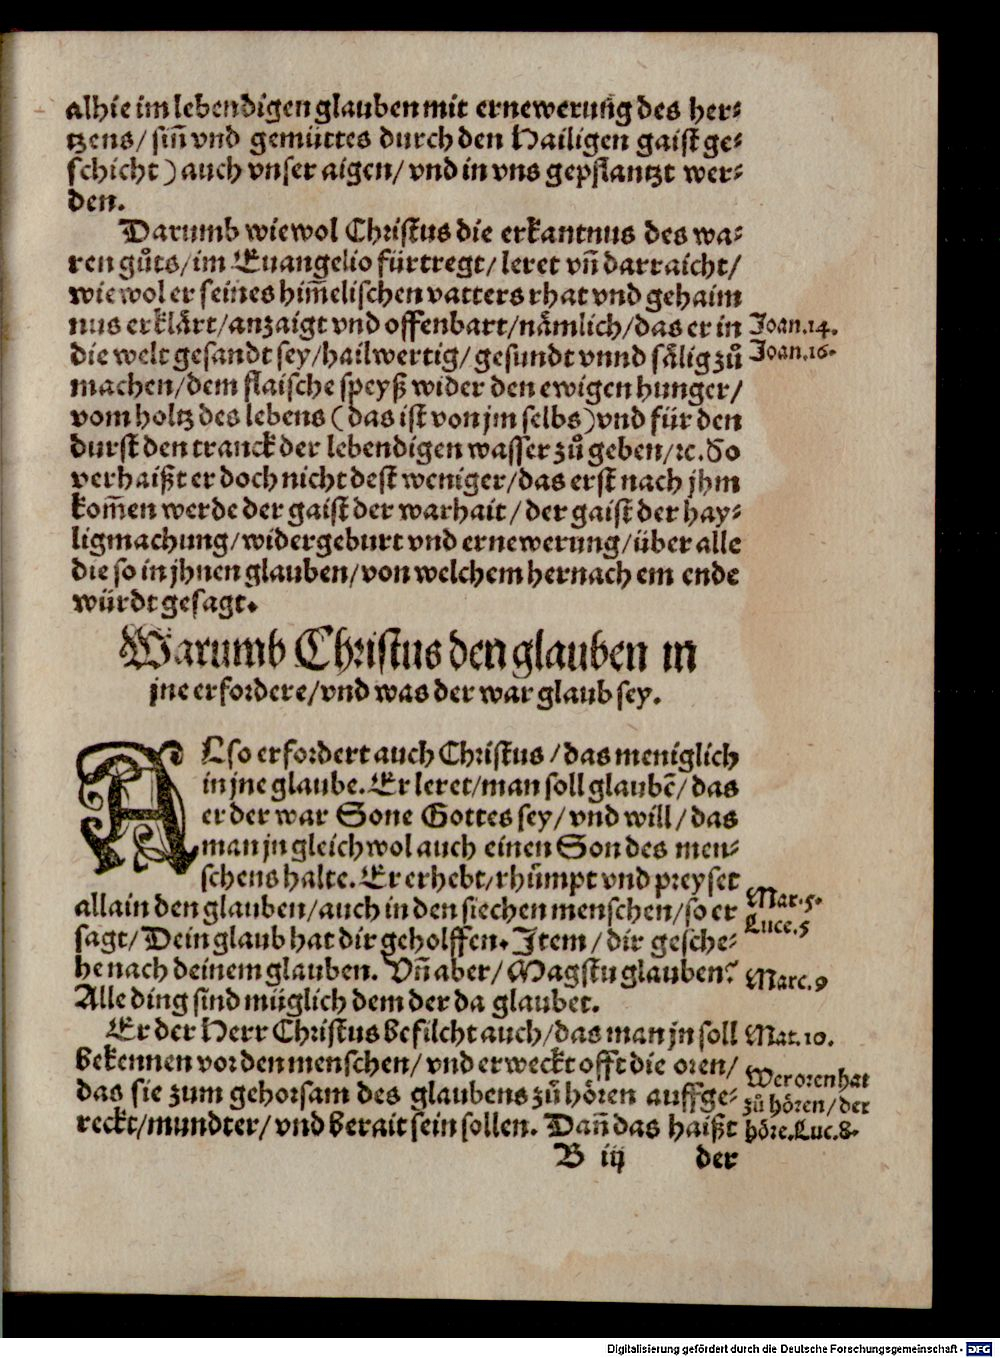 alhie im lebendigen glauben mit ernewerung des her⸗
tzens/ sin̄ vnd gemüttes durch den Hailigen gaist ge⸗
schicht) auch vnser aigen/ vnd in vns gepflantzt wer⸗
den.
Darumb wiewol Christus die erkantnus des wa⸗
ren gůts/ im Euangelio fürtregt/ leret vn̄ darraicht/
wiewol er seines him̄elischen vatters rhat vnd gehaim
nus erklärt/ anzaigt vnd offenbart/ nämlich/ das er in
Joan.14.
die welt gesandt sey/ hailwertig/ gesundt vnnd sälig zů
Joan.16.
machen/ dem flaische speyß wider den ewigen hunger/
vom holtz des lebens (das ist von jm selbs) vnd für den
durst den tranck der lebendigen wasser zů geben/ ꝛc. So
verhaißt er doch nicht dest weniger/ das erst nach jhm
kom̄en werde der gaist der warhait/ der gaist der hay⸗
ligmachung/ widergeburt vnd ernewerung/ über alle
die so in jhnen glauben/ von welchem hernach em ende
würdt gesagt.
Warumb Christus den glauben in
jne erfordere/ vnd was der war glaub sey.
ALso erfordert auch Christus/ das meniglich
in jne glaube. Er leret/ man soll glaubē/ das
er der war Sone Gottes sey/ vnd will/ das
man jn gleichwol auch einen Son des men⸗
schens halte. Er erhebt/ rhůmpt vnd preyset
allain den glauben/ auch in den siechen menschen/ so er
Mar.5.
Luce.5
sagt/ Dein glaub hat dir geholffen. Item/ dir gesche⸗
he nach deinem glauben. Vn̄ aber/ Magstu glauben?
Marc.9
Alle ding sind müglich dem der da glaubet.
Er der Herr Christus befilcht auch/ das man jn soll
Mat.10.
bekennen vor den menschen/ vnd erweckt offt die oren/
Wer oren hat
das sie zum gehorsam des glaubens zů hören auffge⸗
zů hören/ der
reckt/ mundter/ vnd berait sein sollen. Dan̄ das haißt
höre. Luc.8.
B iij der
Digitalisierung gefördert durch die Deutsche Forschungsgemeinschaft - DFG